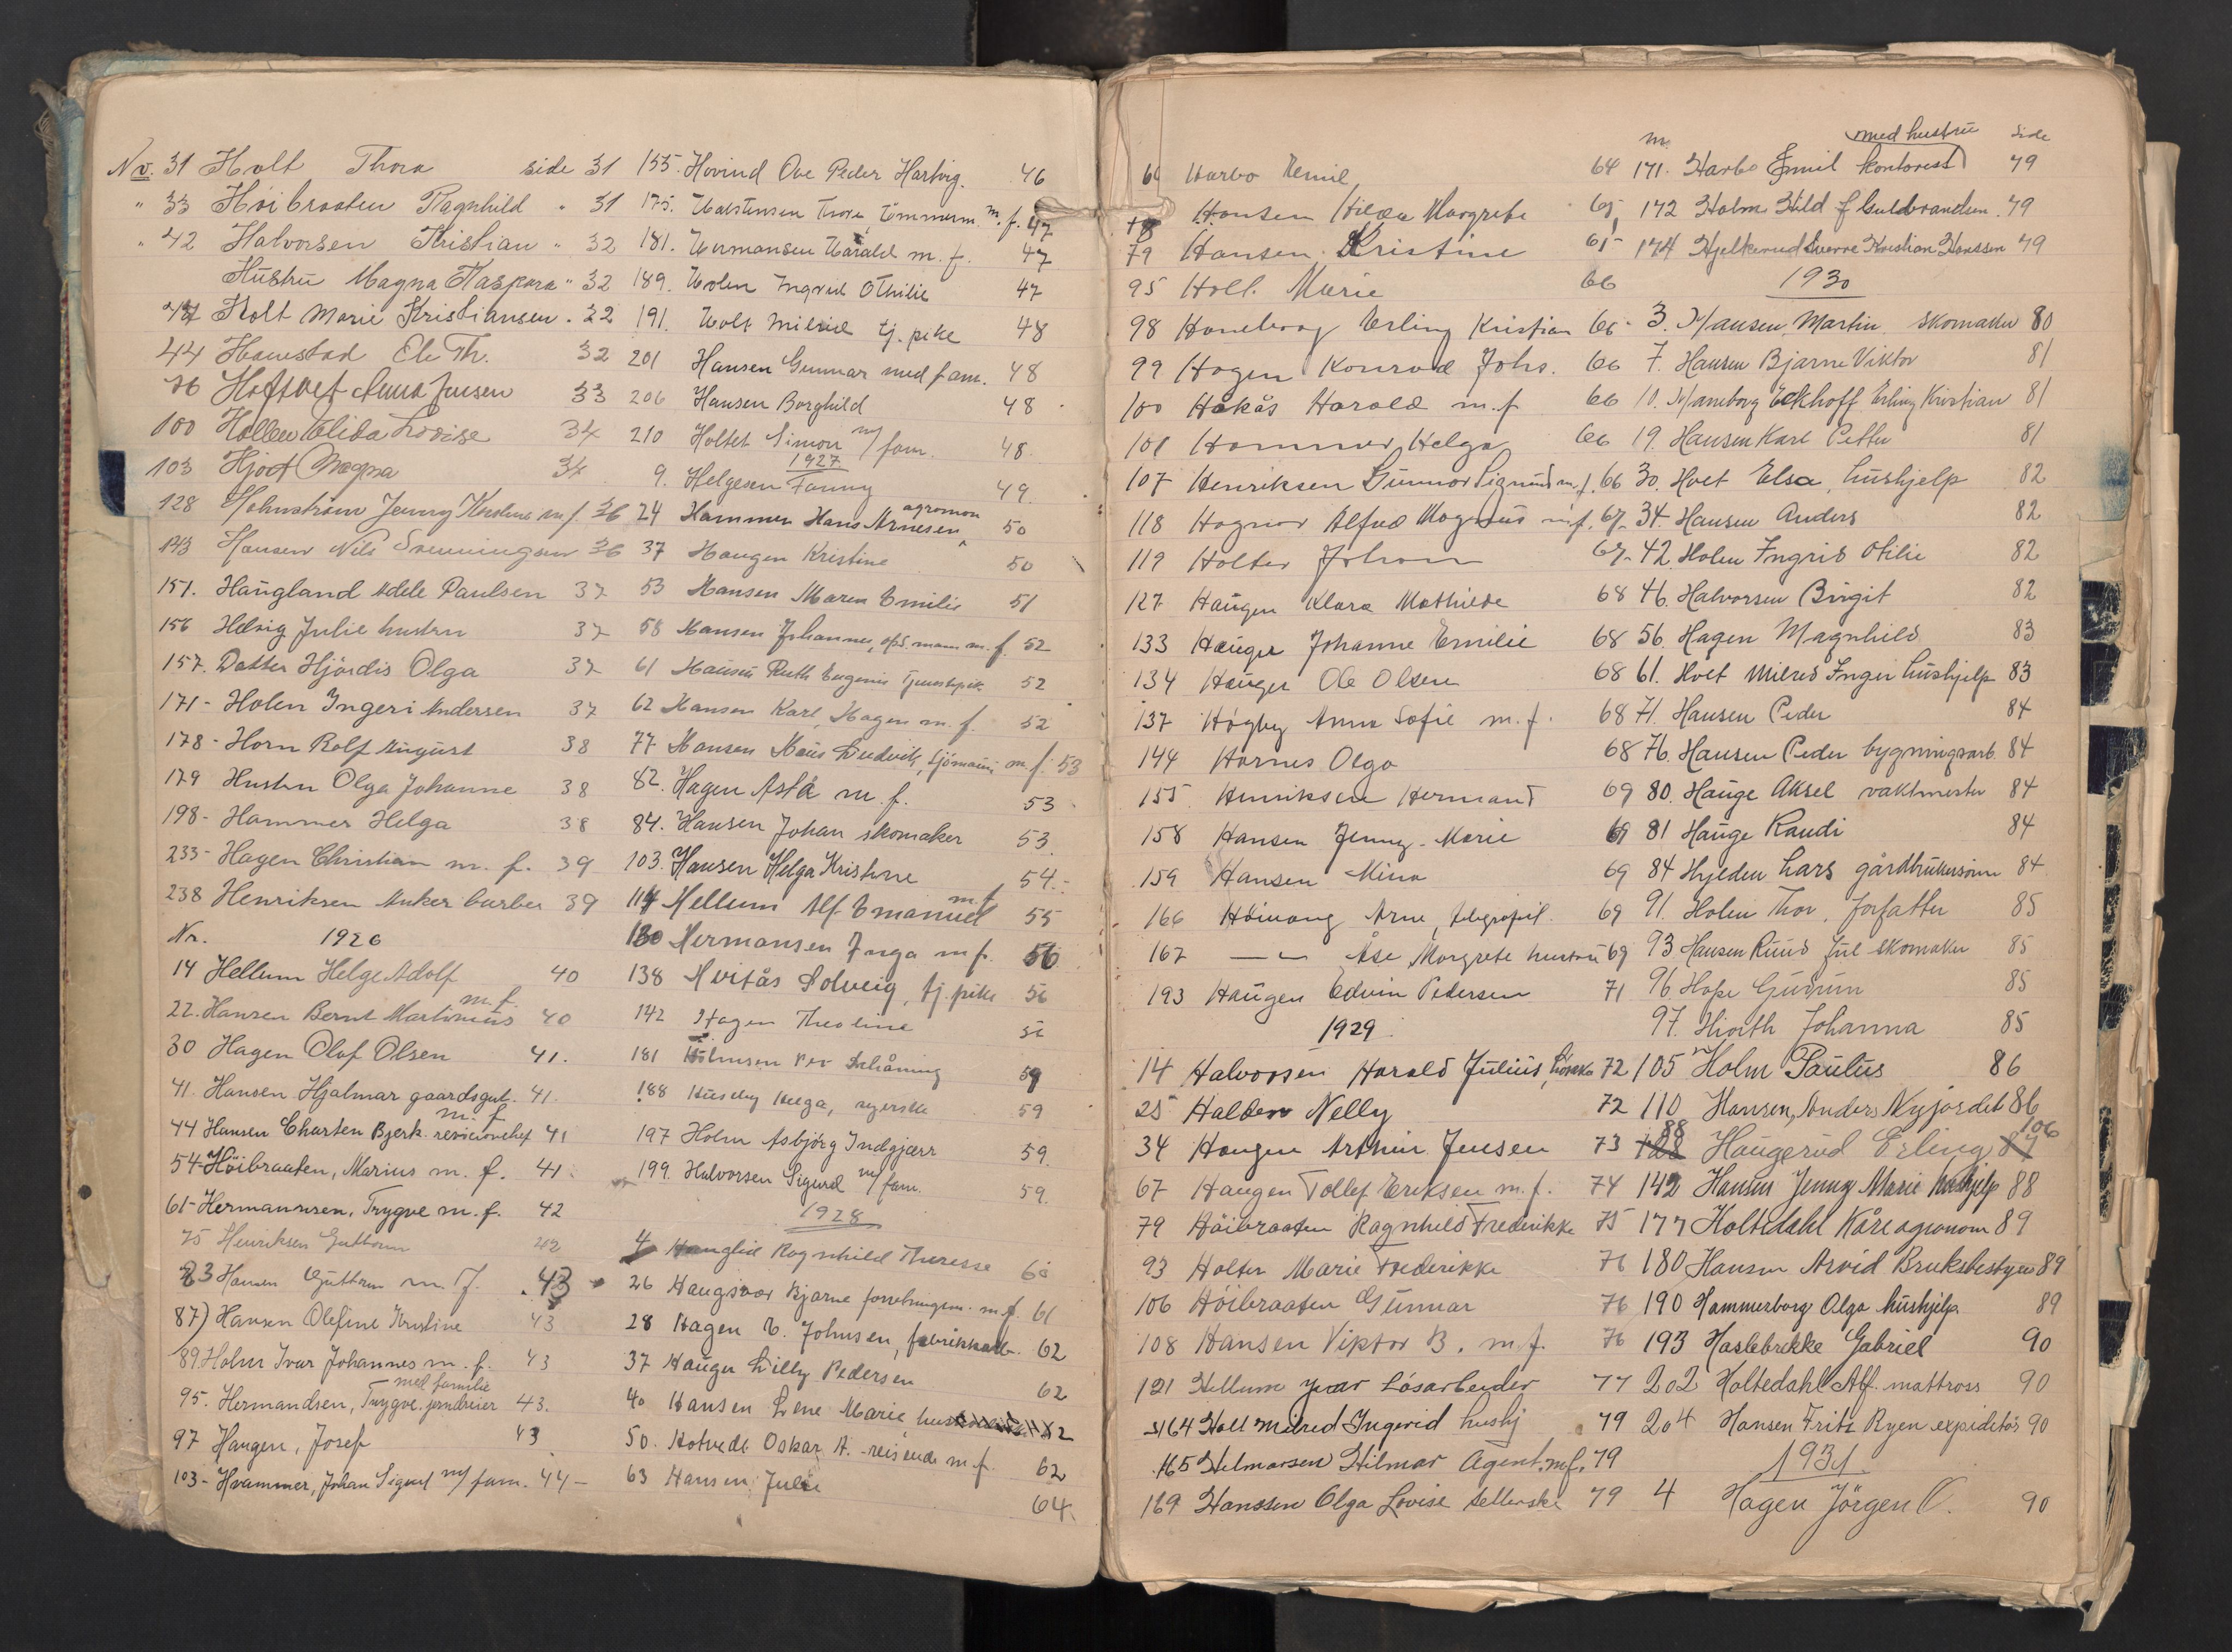 No. 31 Holt Thora side 31
" 33 Höibraaten Ragnhild " 31
" 42 Halvorsen Kristian " 32
Hustru Magna Kaspara " 32
Holt Marie Kristiansen . 32
44 Hauestad Th. 32
76 Anna Jensen 33
100 Elida Lovise 34
103 Hjort Magna 34
128 Holmström Jenny m f. 36
143 Hansen Nils Svenningsen 36
151. Haugland Adele Paulsen 37
156 Helvig Julie hustru 37
157. Datter Hjördis Olga 37
171- Holen Ingeri Andersen 37
178- Horn Rolf August 38
179 Hustru Olga Johanne 38
198- Hammer Helga 38
233- Hagen Christian m. f. 39
238 Henriksen Anker barber 39
Nr. 1926
14 Hellum Helge Adolf 40
22. Hansen Bernt Martinius m. f. 40
30 Hagen Olaf Olsen 41.
41. Hansen Hjalmar gaardsgut. 41.
44 Hansen Charten Bjerk. revisionchef m. f. 41
54- Höibraaten, Marius m. f. 41.
61- Hermannsen, Trygve m. f. 42
75 Henriksen Guttorm 42
83 Hansen Guttorm m. f. 43
87) Hansen Olefine Kristine 43
89. Holm Ivar Johannes m. f. 43
95. Hermandsen, Trygve jerndreier med familie 43.
97 Haugen, Josef 43
103- Hvammer, Johan Sigurd m/ fam. 44-
155. Hovind Ove Peder Hartvig. 46
175. Thore Tömmerm. m. f. 47
181. Hermansen Harald m. f. 47
189. Holen Ingrid Othilie 47
191. Holt Milrid tj. pike 48
201 Hansen Gunnar med fam. 48
206 Hansen Borghild 48
210 Holtet Simon m/ fam. 48
1927
9. Helgesen Fanny 49.
24 Hammer Hans Arnesen agronom 50
37 Haugen Kristine 50
53 Hansen Maren Emilie 51
58 Hansen Johannes, m. f. 52
61 Hansen Ruth Eugenie Tjenestpik. 52
62 Hansen Karl Hagen m. f. 52
77 Hansen Ludvik, Sjömann m. f. 53
82. Hagen Asta m. f. 53
84. Hansen Johan skomaker 53.
103. Hansen Helga Kristine 54.-
114 Hellum Alf Emanuel m. f. 55
130 Hermansen Inga m f. 56
138 Hvitås Solveig, tj. pike 56
142 Hagen Theoline 56
181 Holmsen Per 59
188 Huseby Helga, syerske 59
197 Holm Asbjörg Indgjærr 59.
199. Halvorsen Sigurd m/ fam. 59.
1928
4 Ragnhild Theresse 60
26 Bjarne m. f. 61
28 Hagen Johnsen, 62
37 Hauger Willy Pedersen 62
40 Hansen Lene Marie, 62
50. Hotvedt Oskar A. reisende m f. 62
63 Hansen Julie 64.
Harbo Hemil 64
78 Hansen Hilda Margrete 65
79 Hansen Kristine 65
95 Holl. Marie 66
98 Haneborg Erling Kristian 66
99 Hagen Konrad Johs. 66
100 Håkås Harald m. f 66
101 Hammer, Helga 66
107 Henriksen Gunnar Sigmund m. f. 66
118 Hagnor Alfred Magnus m. f. 67
119 Holter Johan 67-
127 Haugen Klara Mathilde 68
133 Hauger Johanne Emilie 68
134 Hauger Ole Olsen 68
137 Högby Anna Sofie m. f. 68
144 Hornes Olga 68
155 Henriksen Hermand 69
158 Hansen Jenny - Marie 69
159 Hansen Mina 69
166 Arne, 69
167 —"— Åse Margrete hustru 69
193 Haugen Edvin Pedersen 71
1929.
14 Halvorsen Harald Julius, 72
25 Halden Nelly 72
34 Haugen Arthur Jensen 73
67 Haugen Tollef Eriksen m. f. 74
79 Höibraaten Ragnhild Frederikke 75
93 Holter Marie Frederikke 76
106 Höibraaten Gunnar 76
108 Hansen Viktor B. m. f. 76
121 Hellum Ivar Lösarbeider 77
164 Holt Milred Ingerid hushj 79
165 Hilmarsen Hilmar Agent. m f. 79
169 Hanssen Olga Lovise 79
nr. med hustru Side
171. Harbo Emil kontorist 79
172 Holm Hild f Guldbrandsen. 79
174 Hjelkerud Sverre Kristian Hanssen 79
1930
3. Hansen, Martin skomaker 80
7. Hansen Bjarne Viktor 81
10. Haneborg Eckhoff Erling Kristian 81
19. Hansen Karl Petter 81
30. Holt Elsa, hushjelp 82
34. Hansen Anders 82
42. Holen Ingrid Otilie 82
46. Halvorsen Birgit 82
56. Hagen Magnhild 83
61. Holt Milred Inger hushjelp 83
71. Hansen Peder 84
76. Hansen Peder bygningsarb. 84
80. Hauge Aksel vaktmester 84
81 Hauge Randi 84
84 Hylden Lars gårdbrukersönn 84
91. Holen Thor, forfatter 85
93 Hansen Ruud Jul skomaker 85
96. Hope Gudrun 85
97. Hiorth Johanna 85
105 Holm Paulus 86
110 Hansen, Anders Nyjordet 86
88 Haugerud Erling 106
142 Hansen Jenny Marie hushjelp 88
177 Holtedahl Kåre agronom 89
180 Hansen Arvid Bruksbestyrer 89
190 Hammerborg Olga hushjelp 89
193 Haslebrekke Gabriel 90
202 Holtedahl Alf. mattross 90
204 Hansen Frits Ryen expiditör 90
1931.
4 Hagen Jörgen O. 90